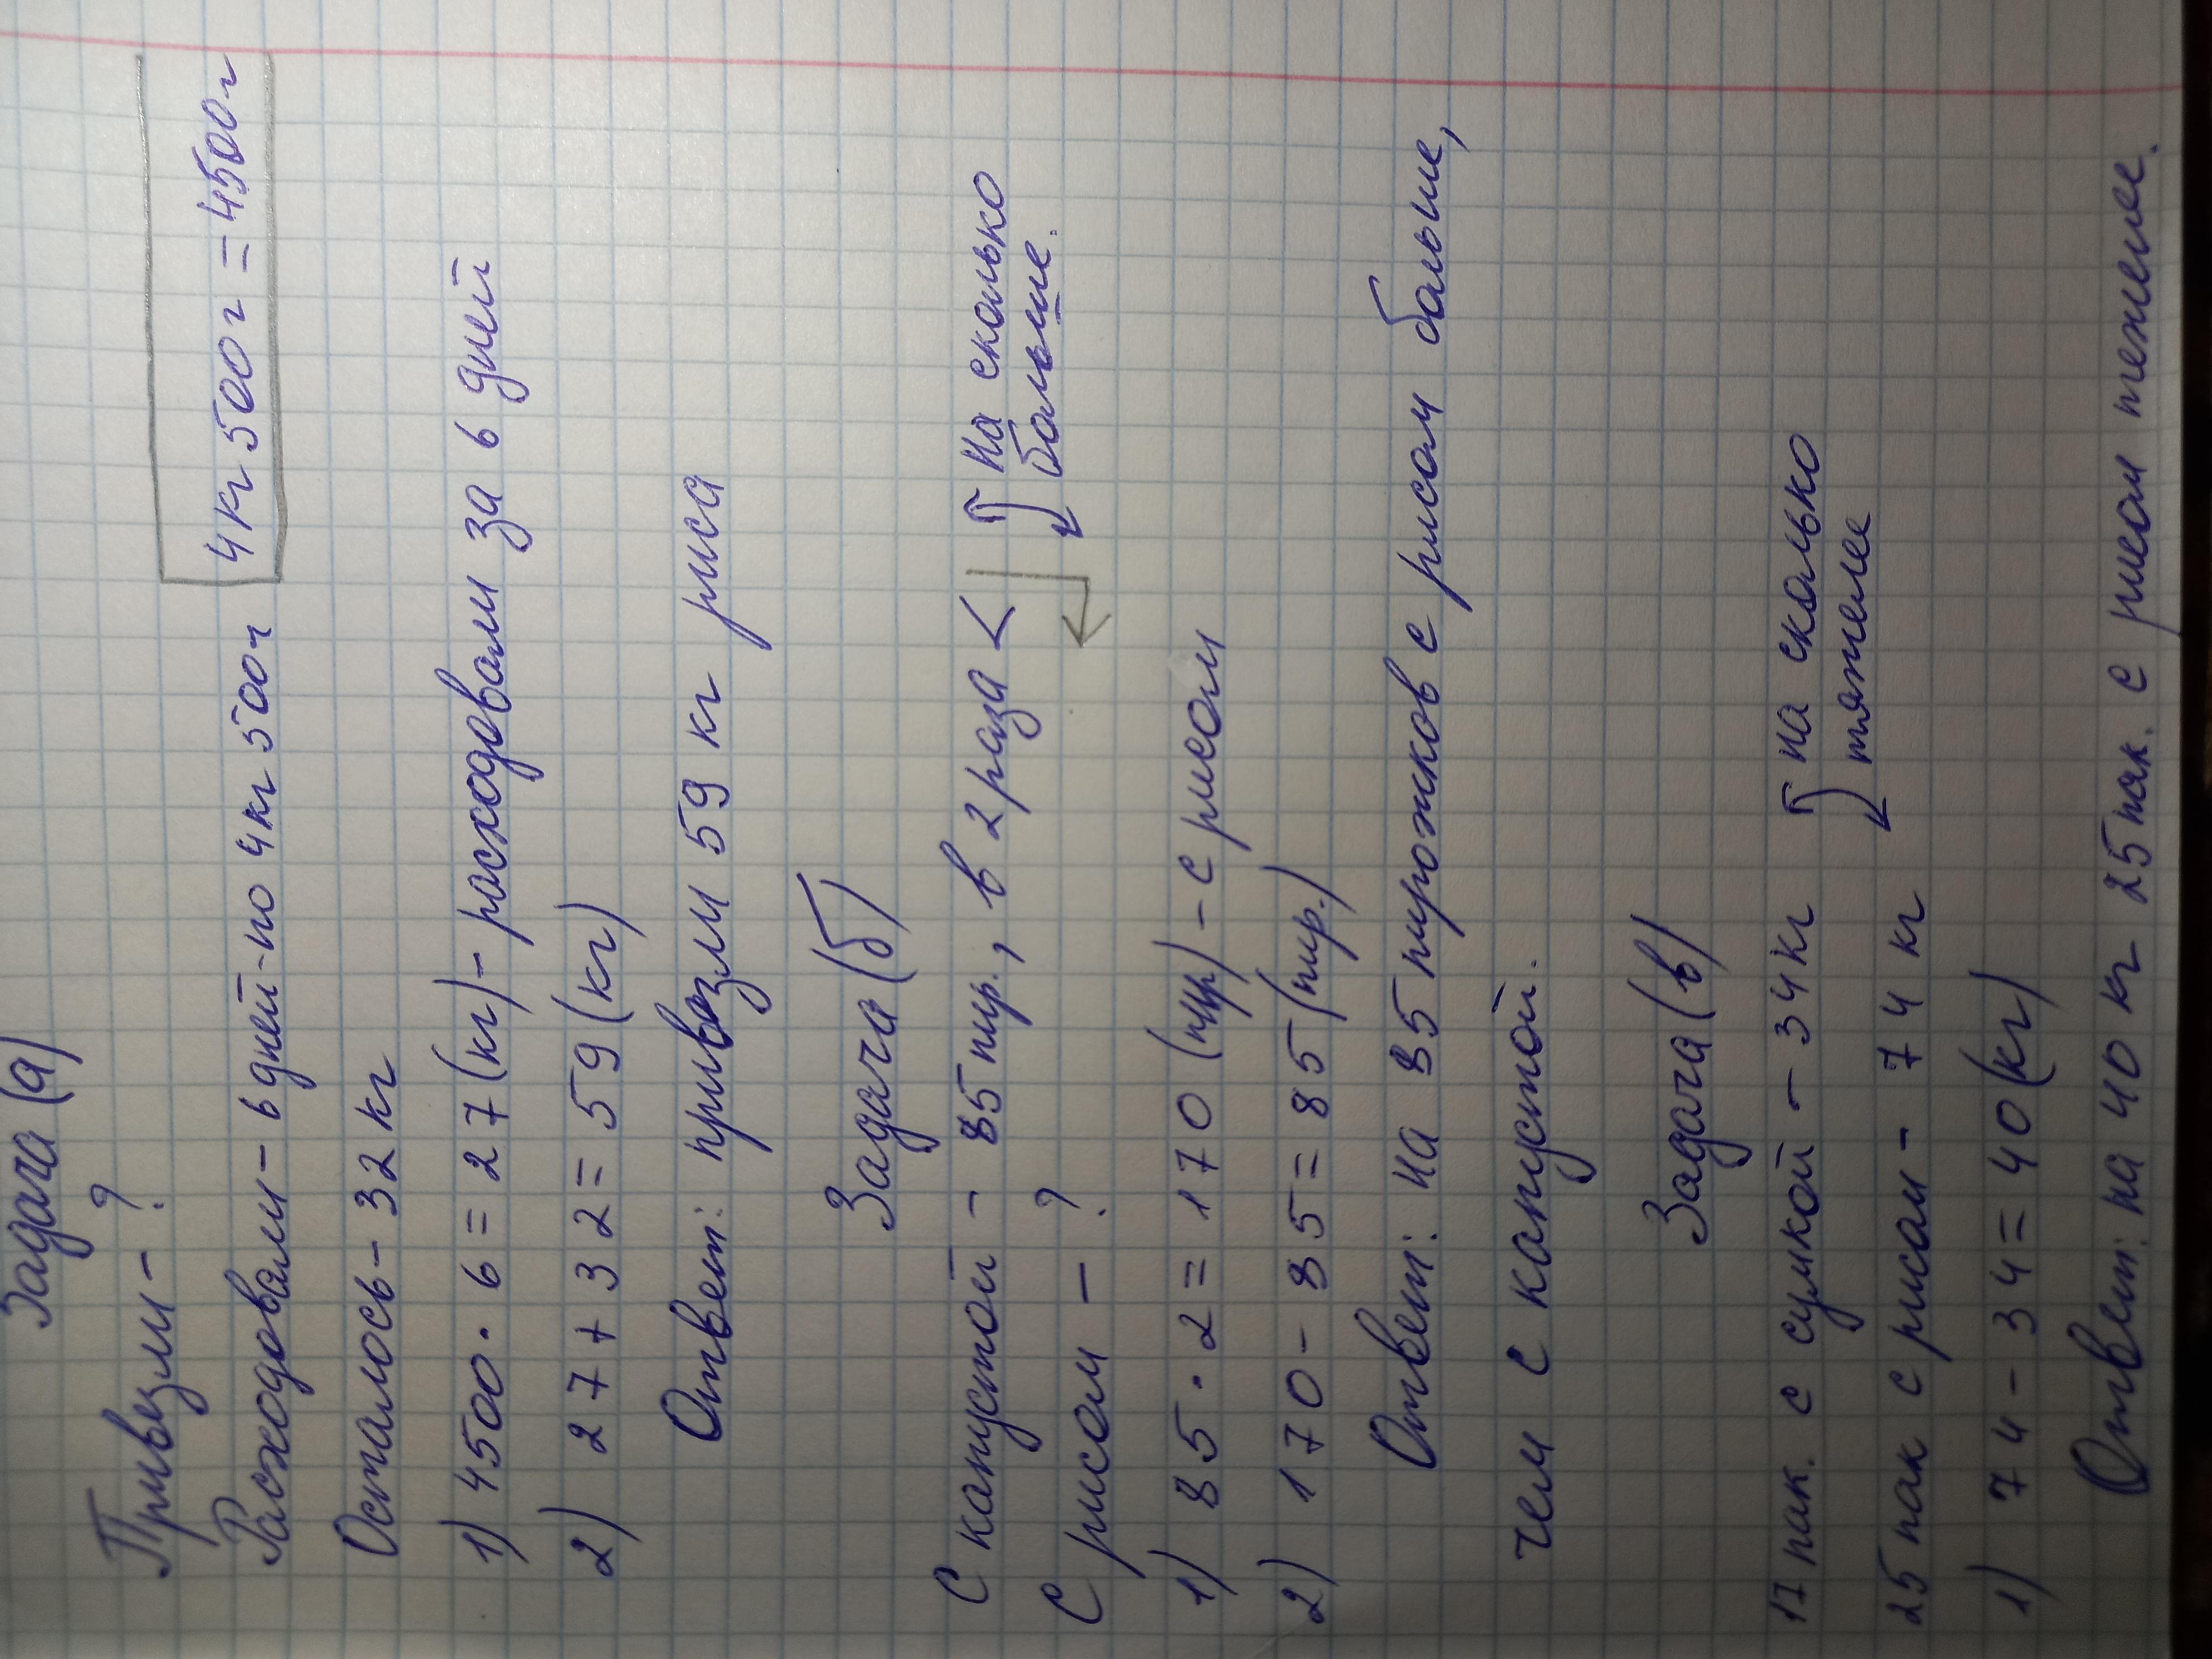 Задача (а)
Привезли - ?
Расходовали - 6 дней - по 4 кг 500 г 4 кг 500 г = 4500 г
Осталось - 32 кг
1) 4500 · 6 = 27 (кг) - расходовали за 6 дней
2) 27 + 32 = 59 (кг)
Ответ: привезли 59 кг риса
Задача (б)
С капустой - 85 пир., в 2 раза < На сколько
больше.
С рисом - ?
1) 85 · 2 = 170 (пир) - с рисом
2) 170 - 85 = 85 (пир.)
Ответ: на 85 пирожков с рисом больше,
чем с капустой.
Задача (в)
17 пак. с сумкой - 34 кг на сколько
тяжелее
25 пак с рисом - 74 кг
1) 74 - 34 = 40 (кг)
Ответ: на 40 кг 25 пак. с рисом тежелее.